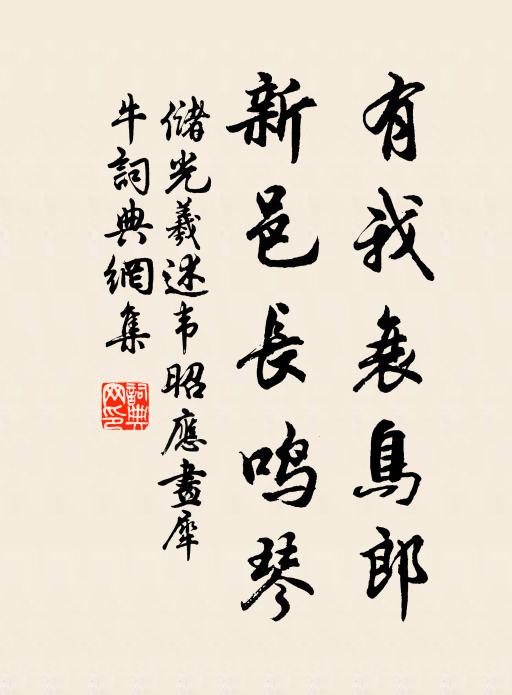 有我衰鳥郎
新邑長鸣琴
儲光羲述韦昭應畫犀
牛詞典網集
詞典网印